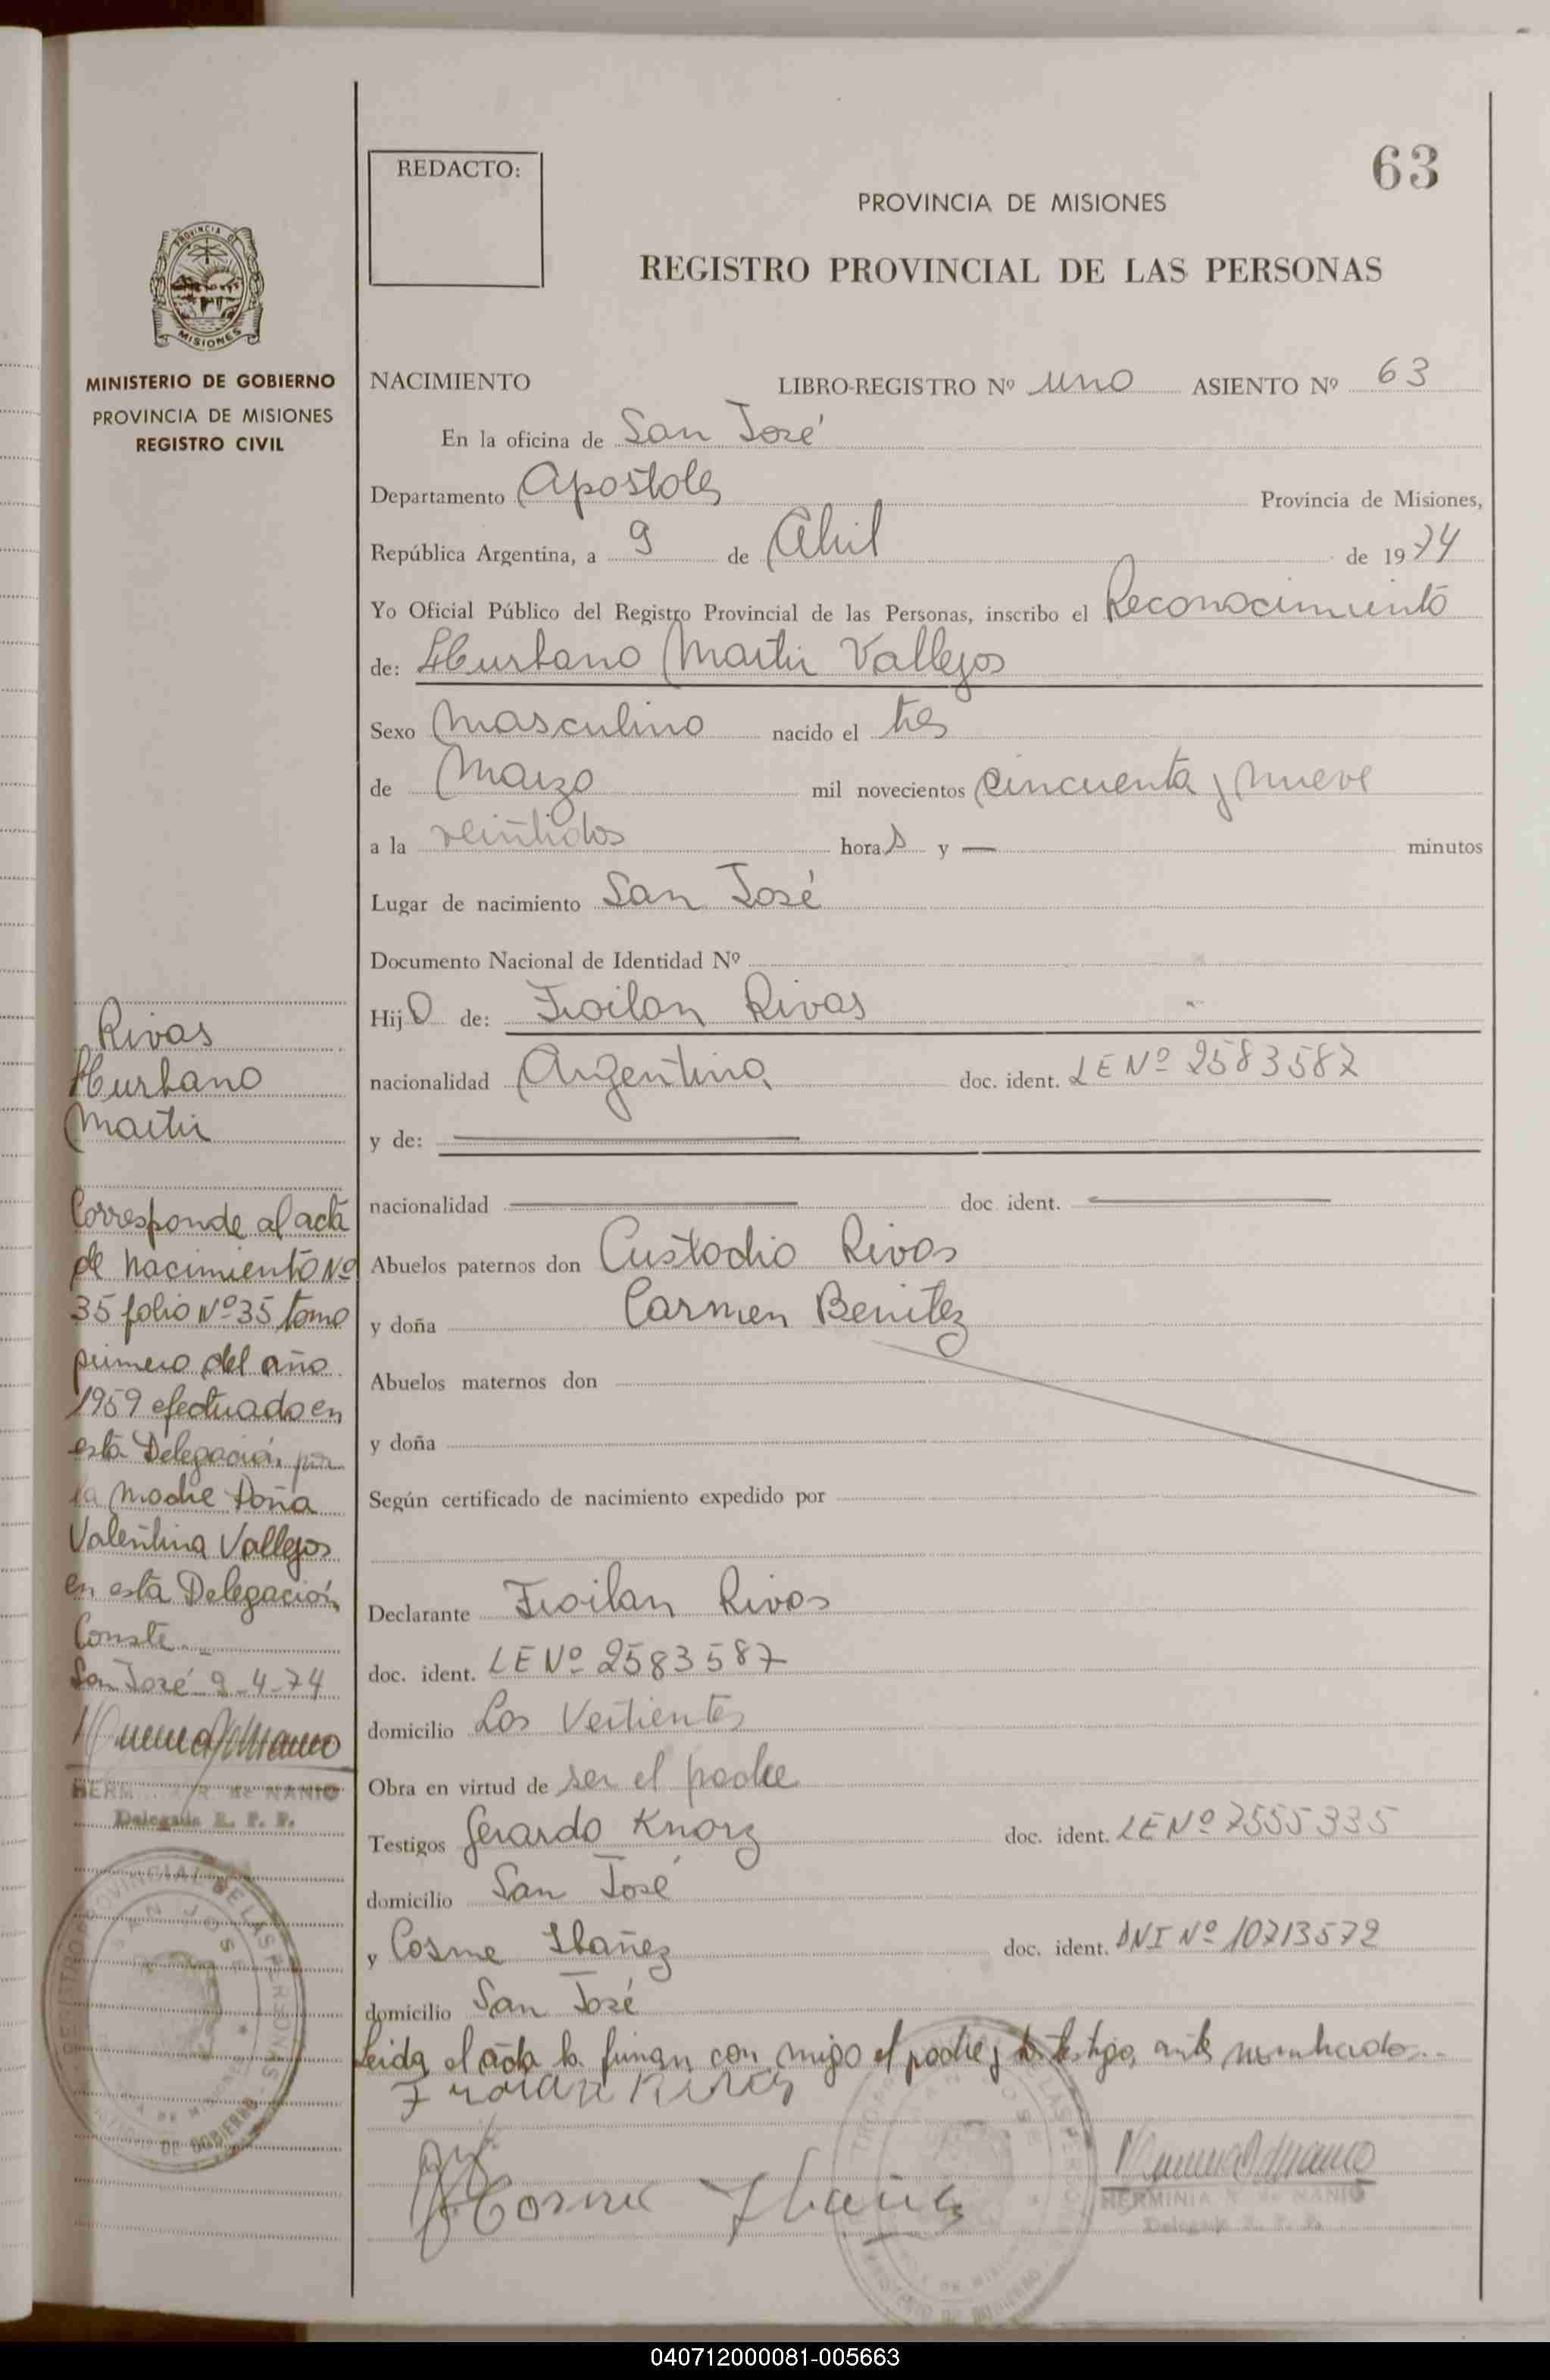 63
REDACTO:
PROVINCIA DE MISIONES
REGISTRO PROVINCIAL DE LAS PERSONAS
MISIONES
MINISTERIO DE GOBIERNO
PROVINCIA DE MISIONES
REGISTRO CIVIL
NACIMIENTO LIBRO-REGISTRO Nº uno ASIENTO Nº 63
En la oficina de San José
Departamento Apostoles Provincia de Misiones,
República Argentina, a 9 de Abril de 1974
Yo Oficial Público del Registro Provincial de las Personas, inscribo el Reconocimiento
de: Hurbano Martir Vallejos
Sexo Masculino nacido el tres
de Marzo mil novecientos cincuenta y nueve
a la veintidos horas y — minutos
Lugar de nacimiento San José
Documento Nacional de Identidad Nº
Hijo de: Froilan Rivas
nacionalidad Argentina doc. ident. LE Nº 2583587
y de:
nacionalidad doc. ident.
Abuelos paternos don Custodio Rivas
y doña Carmen Benitez
Abuelos maternos don
y doña
Según certificado de nacimiento expedido por
Declarante Froilan Rivas
doc. ident. LE Nº 2583587
domicilio Las Vertientes
Obra en virtud de ser el padre
Testigos Gerardo Knorz doc. ident. LE Nº 7555335
domicilio San José
y Cosme Ibañez doc. ident. DNI Nº 10713572
domicilio San José
Leida el acta la firman con migo el padre y los testigos antes nombrados..
Froilan Rivas
Cosme Ibañez
HERMINIA R. de NANIO
Delegada R. P. P.
Rivas
Hurbano
Martir
Corresponde al acta
de nacimiento Nº
35 folio Nº 35 tomo
primero del año
1959 efectuado en
esta Delegación por
la madre Doña
Valentina Vallejos
en esta Delegación
Conste.
San José 9-4-74
de NANIO
Delegada R. P. P.
REGISTRO PROVINCIAL DE LAS PERSONAS
SAN JOSE
DE GOBIERNO
040712000081-005663